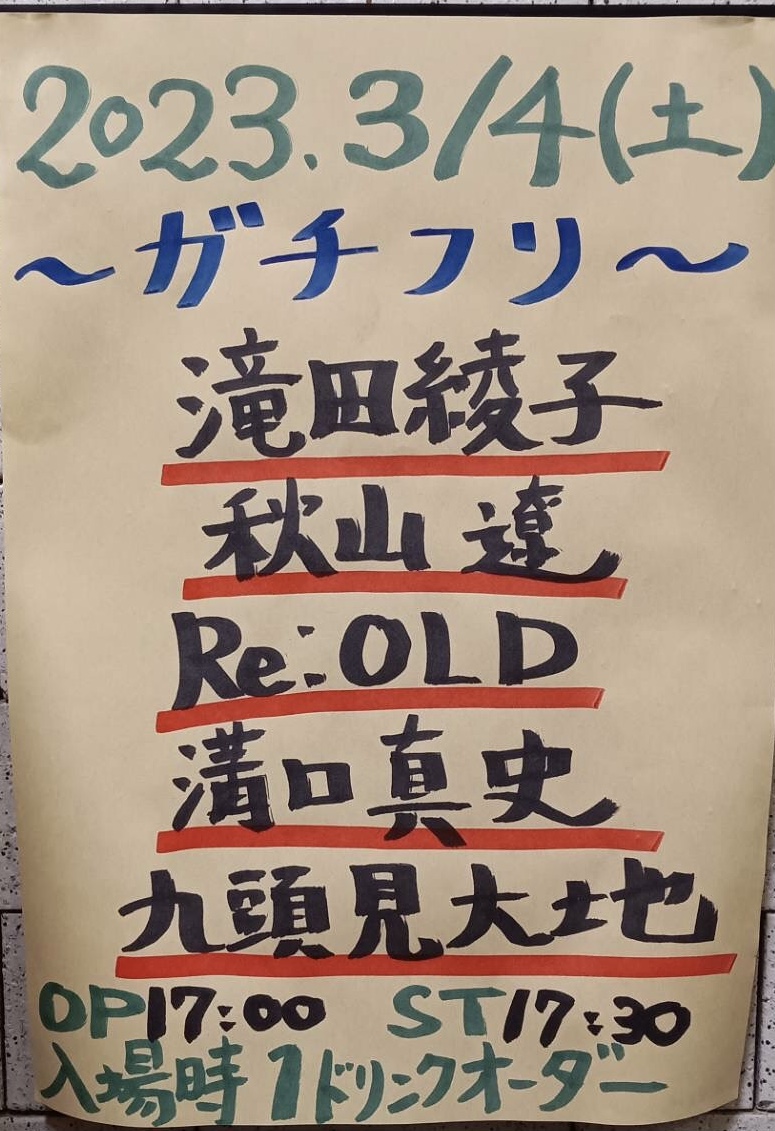 2023.3/4(土)
～ガチフリ～
滝田綾子
秋山遼
Re:OLD
溝口真史
九頭見大地
OP17:00 ST17:30
入場時1ドリンクオーダー